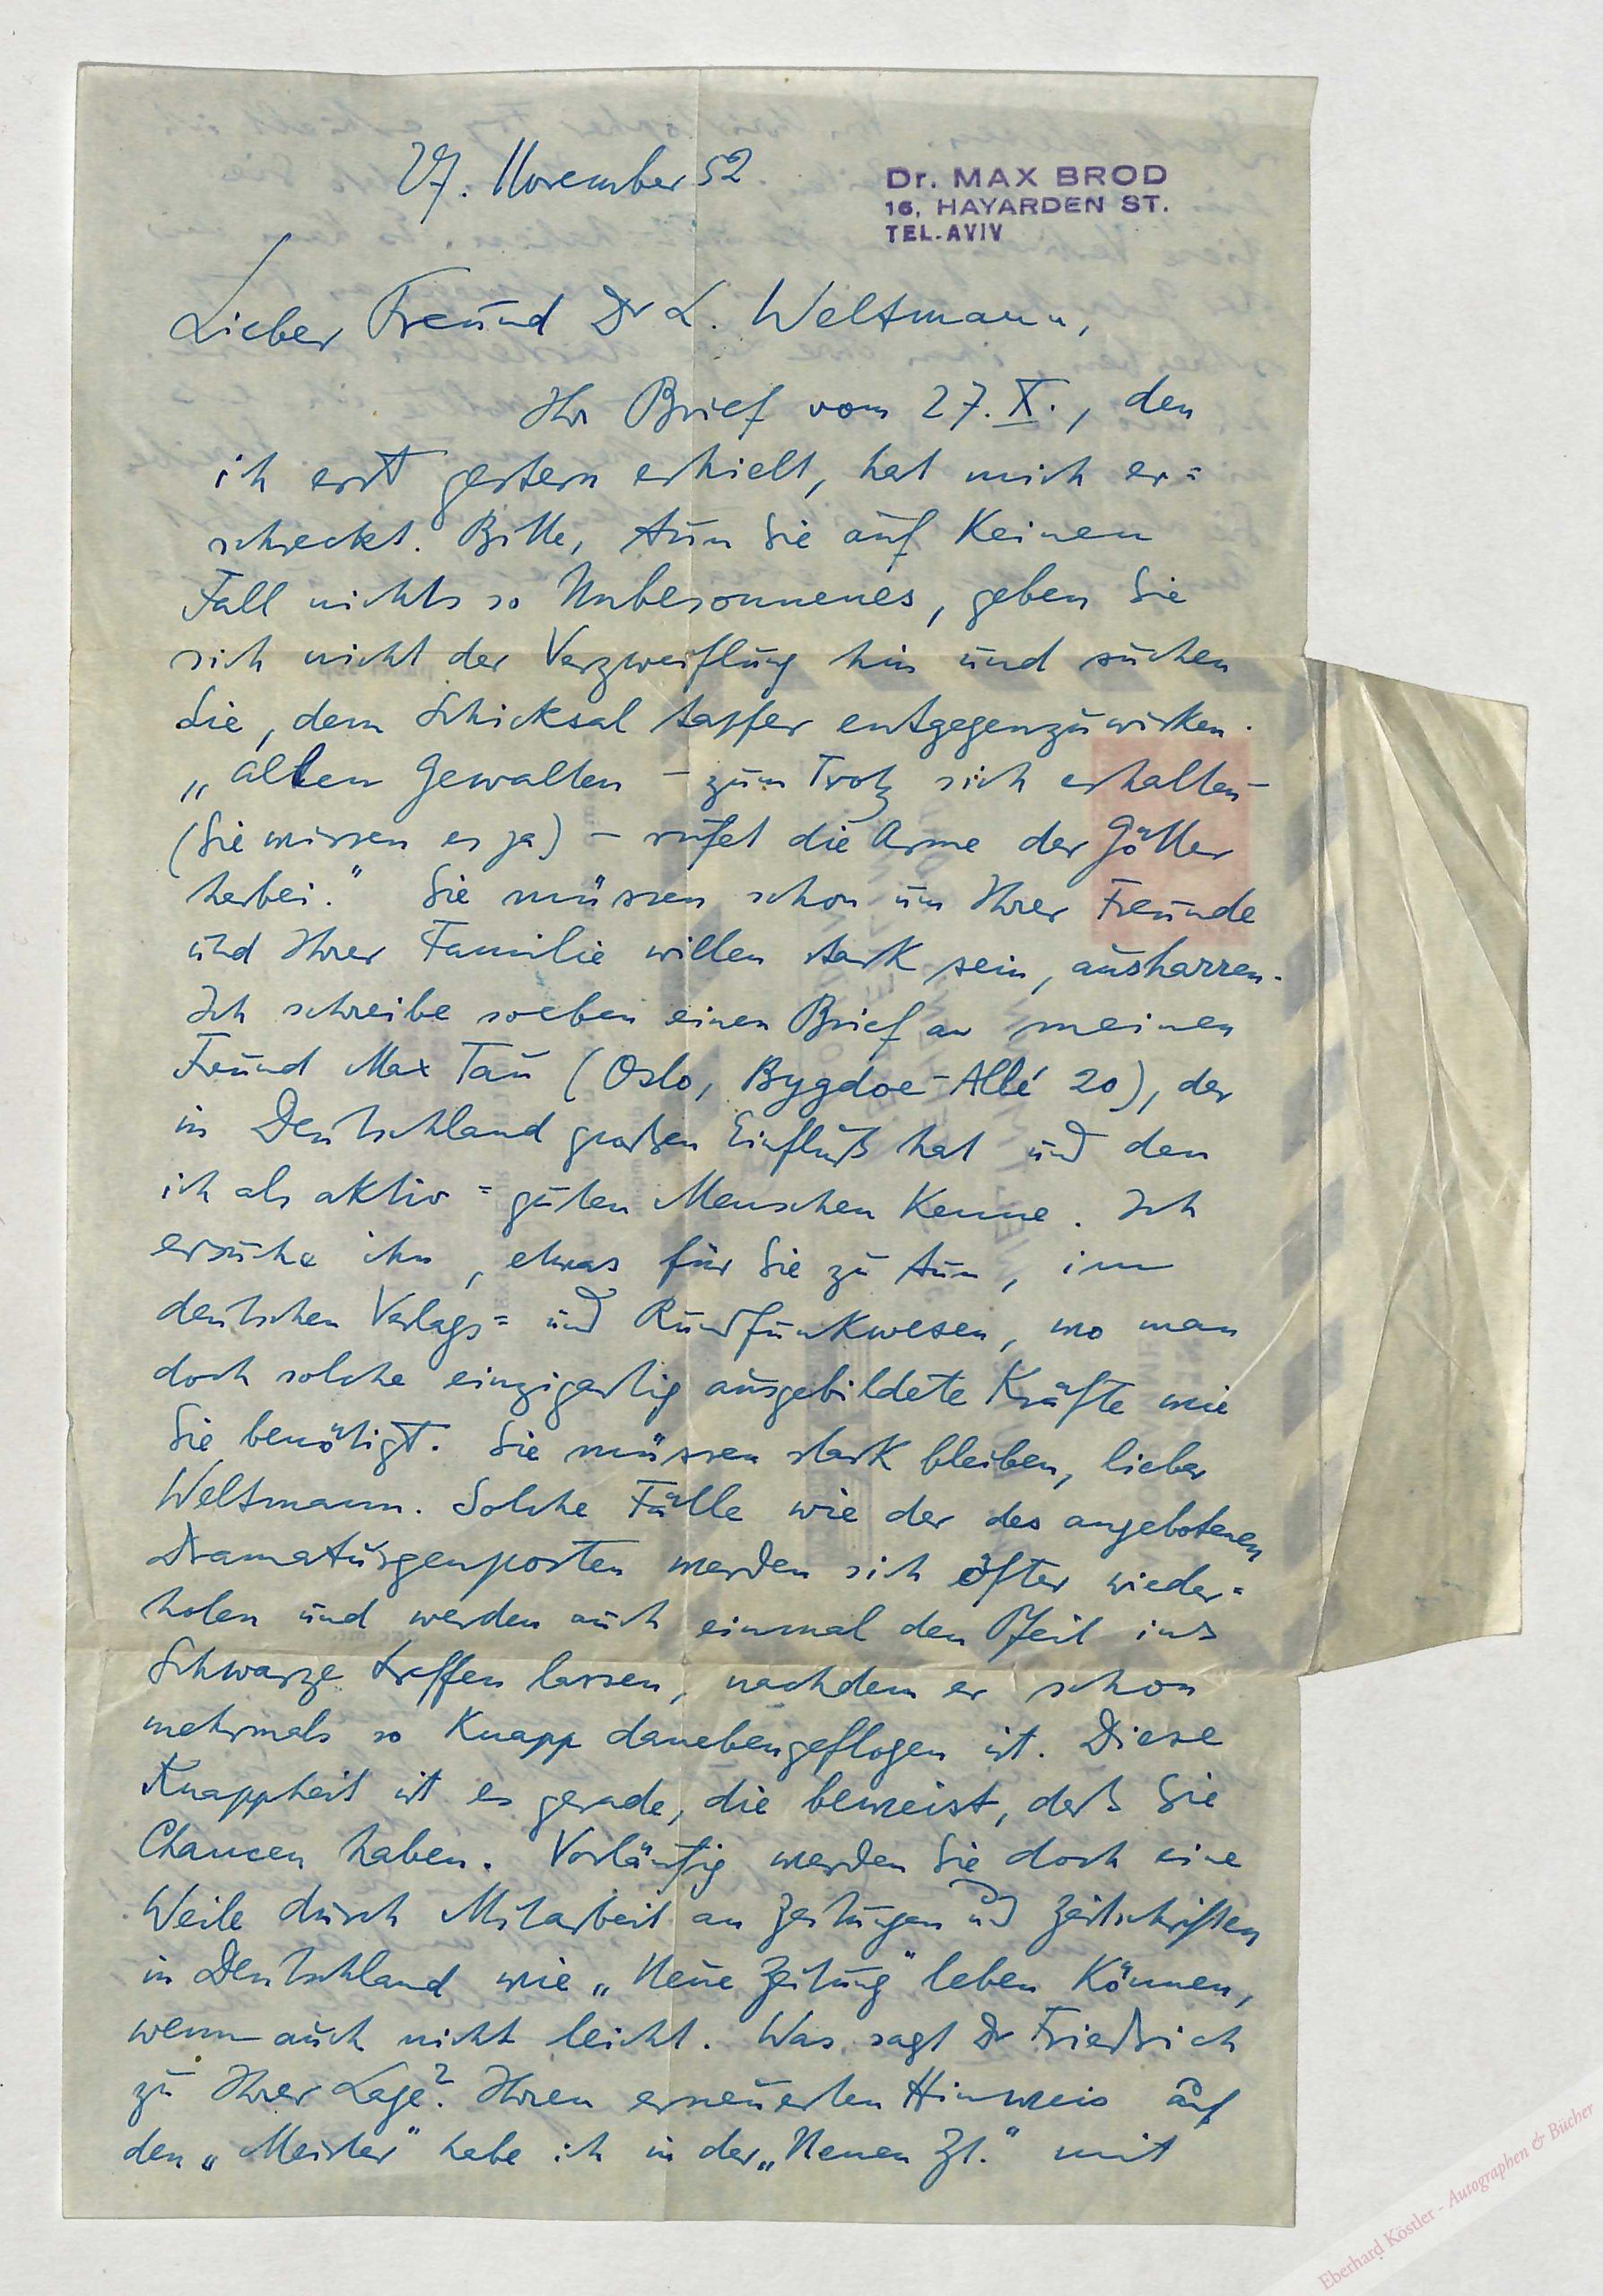 27. November 52
Dr. MAX BROD
16, HAYARDEN ST.
TEL-AVIV
Lieber Freund Dr L. Weltmann,
Ihr Brief vom 27. X., den
ich erst gestern erhielt, hat mich er=
schreckt. Bitte, tun Sie auf keinen
Fall nichts so Unbesonnenes, geben Sie
sich nicht der Verzweiflung hin und suchen
Sie, dem Schicksal tapfer entgegenzuwirken.
„Allen Gewalten – zum Trotz sich erhalten –
(Sie wissen es ja) – rufet die Arme der Götter
herbei." Sie müssen schon um Ihrer Freunde
und Ihrer Familie willen stark sein, ausharren.
Ich schreibe soeben einen Brief an meinen
Freund Max Tau (Oslo, Bygdoe-Allé 20), der
in Deutschland großen Einfluß hat und den
ich als aktiv=guten Menschen kenne. Ich
ersuche ihn, etwas für Sie zu tun, im
deutschen Verlags= und Rundfunkwesen, wo man
doch solche einzigartig ausgebildete Kräfte wie
Sie benötigt. Sie müssen stark bleiben, lieber
Weltmann. Solche Fälle wie der des angebotenen
Dramaturgenposten werden sich öfter wieder=
holen und werden auch einmal den Pfeil ins
Schwarze treffen lassen, nachdem er schon
mehrmals so knapp danebengeflogen ist. Diese
Knappheit ist es gerade, die beweist, daß Sie
Chancen haben. Vorläufig werden Sie doch eine
Weile durch Mitarbeit an Zeitungen und Zeitschriften
in Deutschland wie „Neue Zeitung" leben können,
wenn auch nicht leicht. Was sagt Dr Friedrich
zu Ihrer Lage? Ihren erneuerten Hinweis auf
den „Meister" habe ich in der „Neuen Zt." mit
Eberhard Köstler - Autographen & Bücher